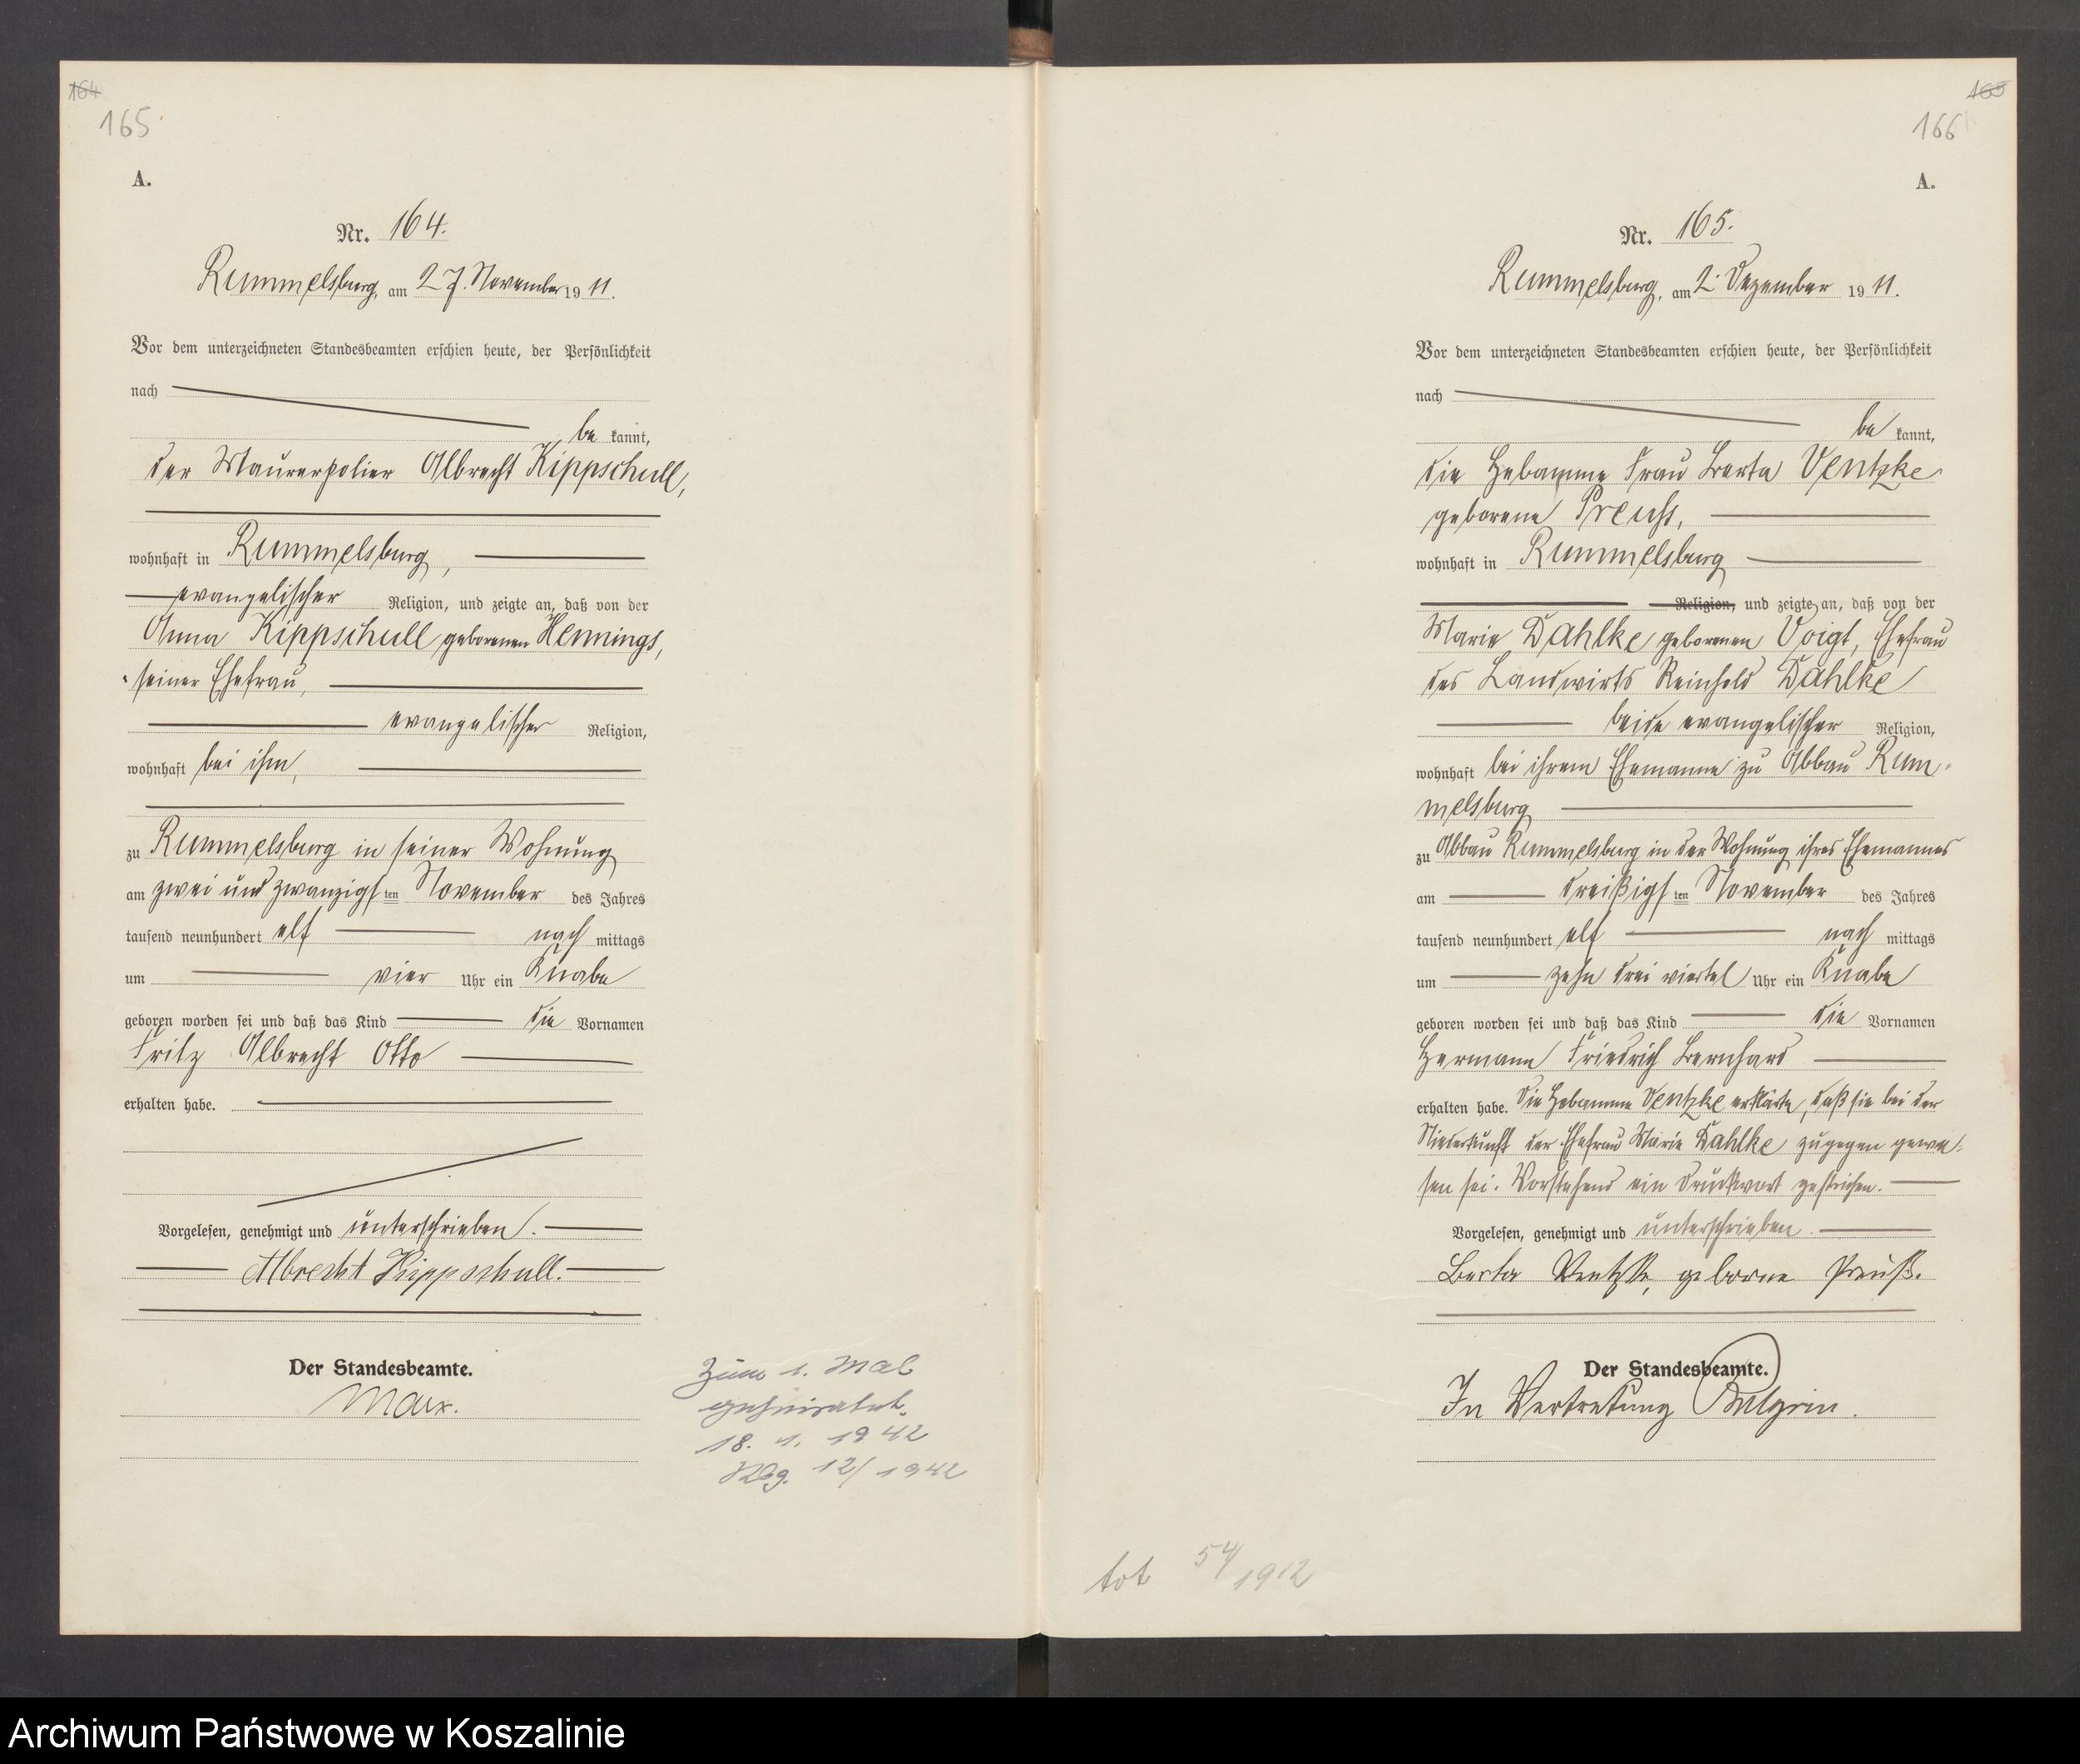 164
165
A.
Nr. 164.
Rummelsburg, am 27. November 1911.
Vor dem unterzeichneten Standesbeamten erschien heute, der Persönlichkeit
nach
be kannt,
der Maurerpolier Albrecht Kippschull,
wohnhaft in Rummelsburg,
evangelischer Religion, und zeigte an, daß von der
Anna Kippschull geborenen Hennings,
seiner Ehefrau,
evangelischer Religion,
wohnhaft bei ihm,
zu Rummelsburg in seiner Wohnung
am zwei und zwanzigsten November des Jahres
tausend neunhundert elf nach mittags
um vier Uhr ein Knabe
geboren worden sei und daß das Kind die Vornamen
Fritz Albrecht Otto
erhalten habe.
Vorgelesen, genehmigt und unterschrieben.
Albrecht Kippschull.
Der Standesbeamte.
Marx.
Zum 1. Mal
geheiratet.
18. 1. 1942
Rbg. 12/1942
165
166
A.
Nr. 165.
Rummelsburg, am 2. Dezember 1911.
Vor dem unterzeichneten Standesbeamten erschien heute, der Persönlichkeit
nach
be kannt,
die Hebamme Frau Berta Ventzke
geborene Preuss,
wohnhaft in Rummelsburg
Religion, und zeigte an, daß von der
Marie Dahlke geborenen Voigt, Ehefrau
des Landwirts Reinhold Dahlke
beide evangelischer Religion,
wohnhaft bei ihrem Ehemanne zu Abbau Rum-
melsburg
zu Abbau Rummelsburg in der Wohnung ihres Ehemannes
am dreißigsten November des Jahres
tausend neunhundert elf nach mittags
um zehn drei viertel Uhr ein Knabe
geboren worden sei und daß das Kind die Vornamen
Hermann Friedrich Bernhard
erhalten habe. Die Hebamme Ventzke erklärte, daß sie bei der
Niederkunft der Ehefrau Marie Dahlke zugegen gewe-
sen sei. Vorstehend ein Druckwort gestrichen.
Vorgelesen, genehmigt und unterschrieben.
Berta Ventzke, geborne Preuß.
Der Standesbeamte.
In Vertretung
tot 54/1912
Archiwum Państwowe w Koszalinie